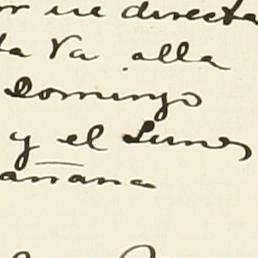 or ue directa
ta Va alla
Domingo
y el Lunes
añana